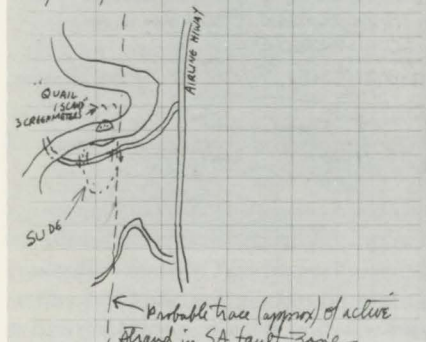 AIRLINE HIWAY
"QUAIL
ISLAND"
SLIDE
← Probable trace (approx) of active
strand in SA fault zone